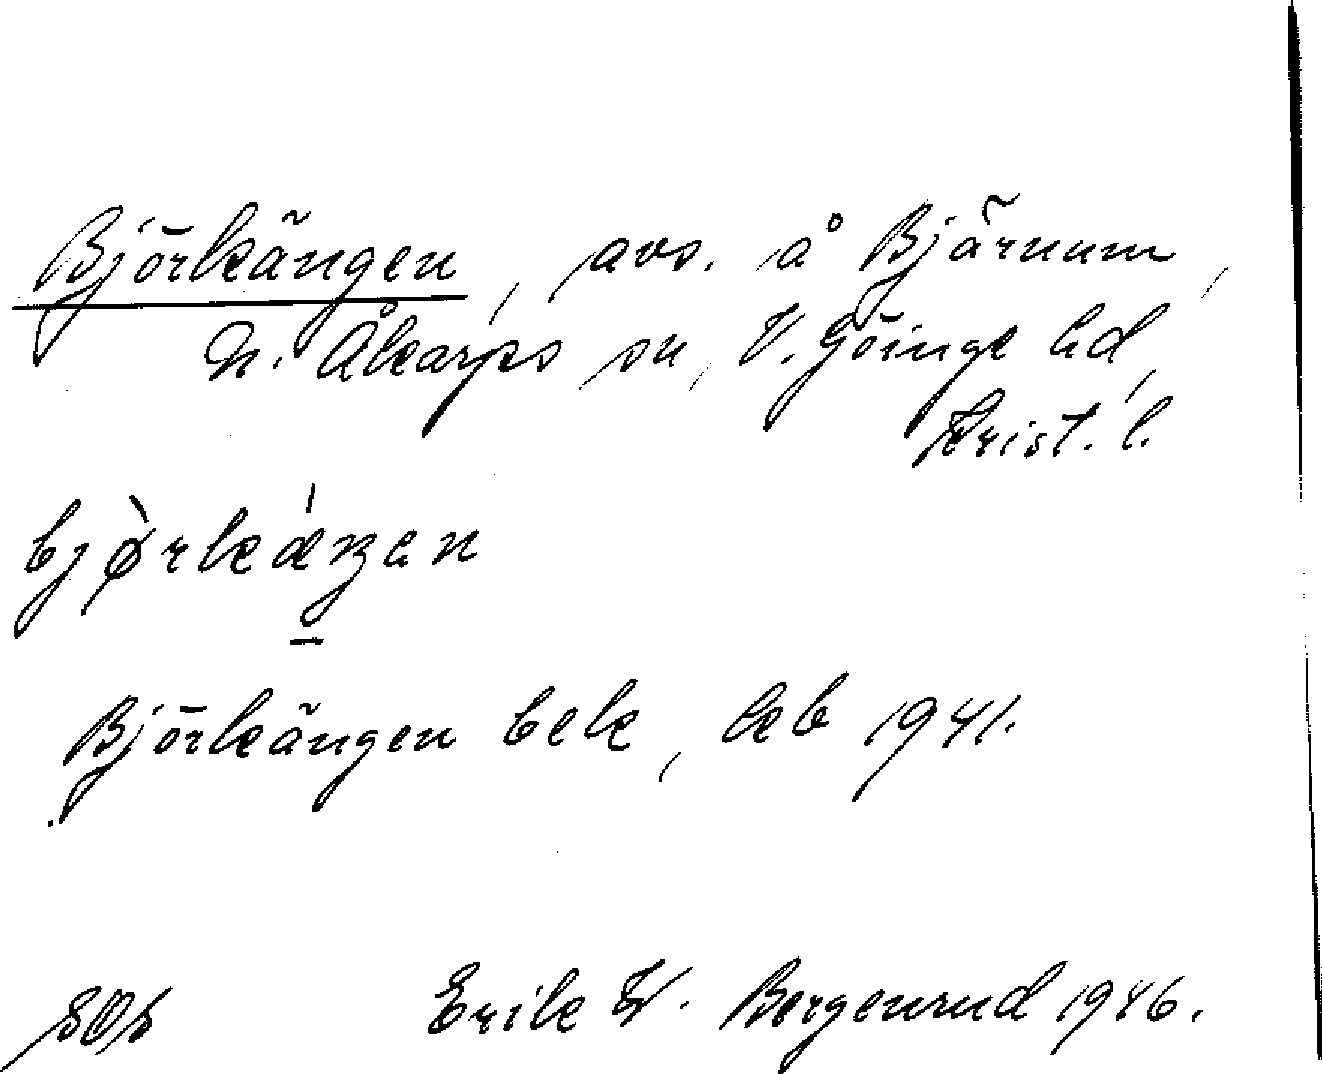 Björkängen, avs. å Bjärnum,
N. Åkarps sn, V. Göinge hd,
Krist. l.
bjørkæŋen
Björkängen bek, kb 1941.
Erik W. Bergenrud 1946.